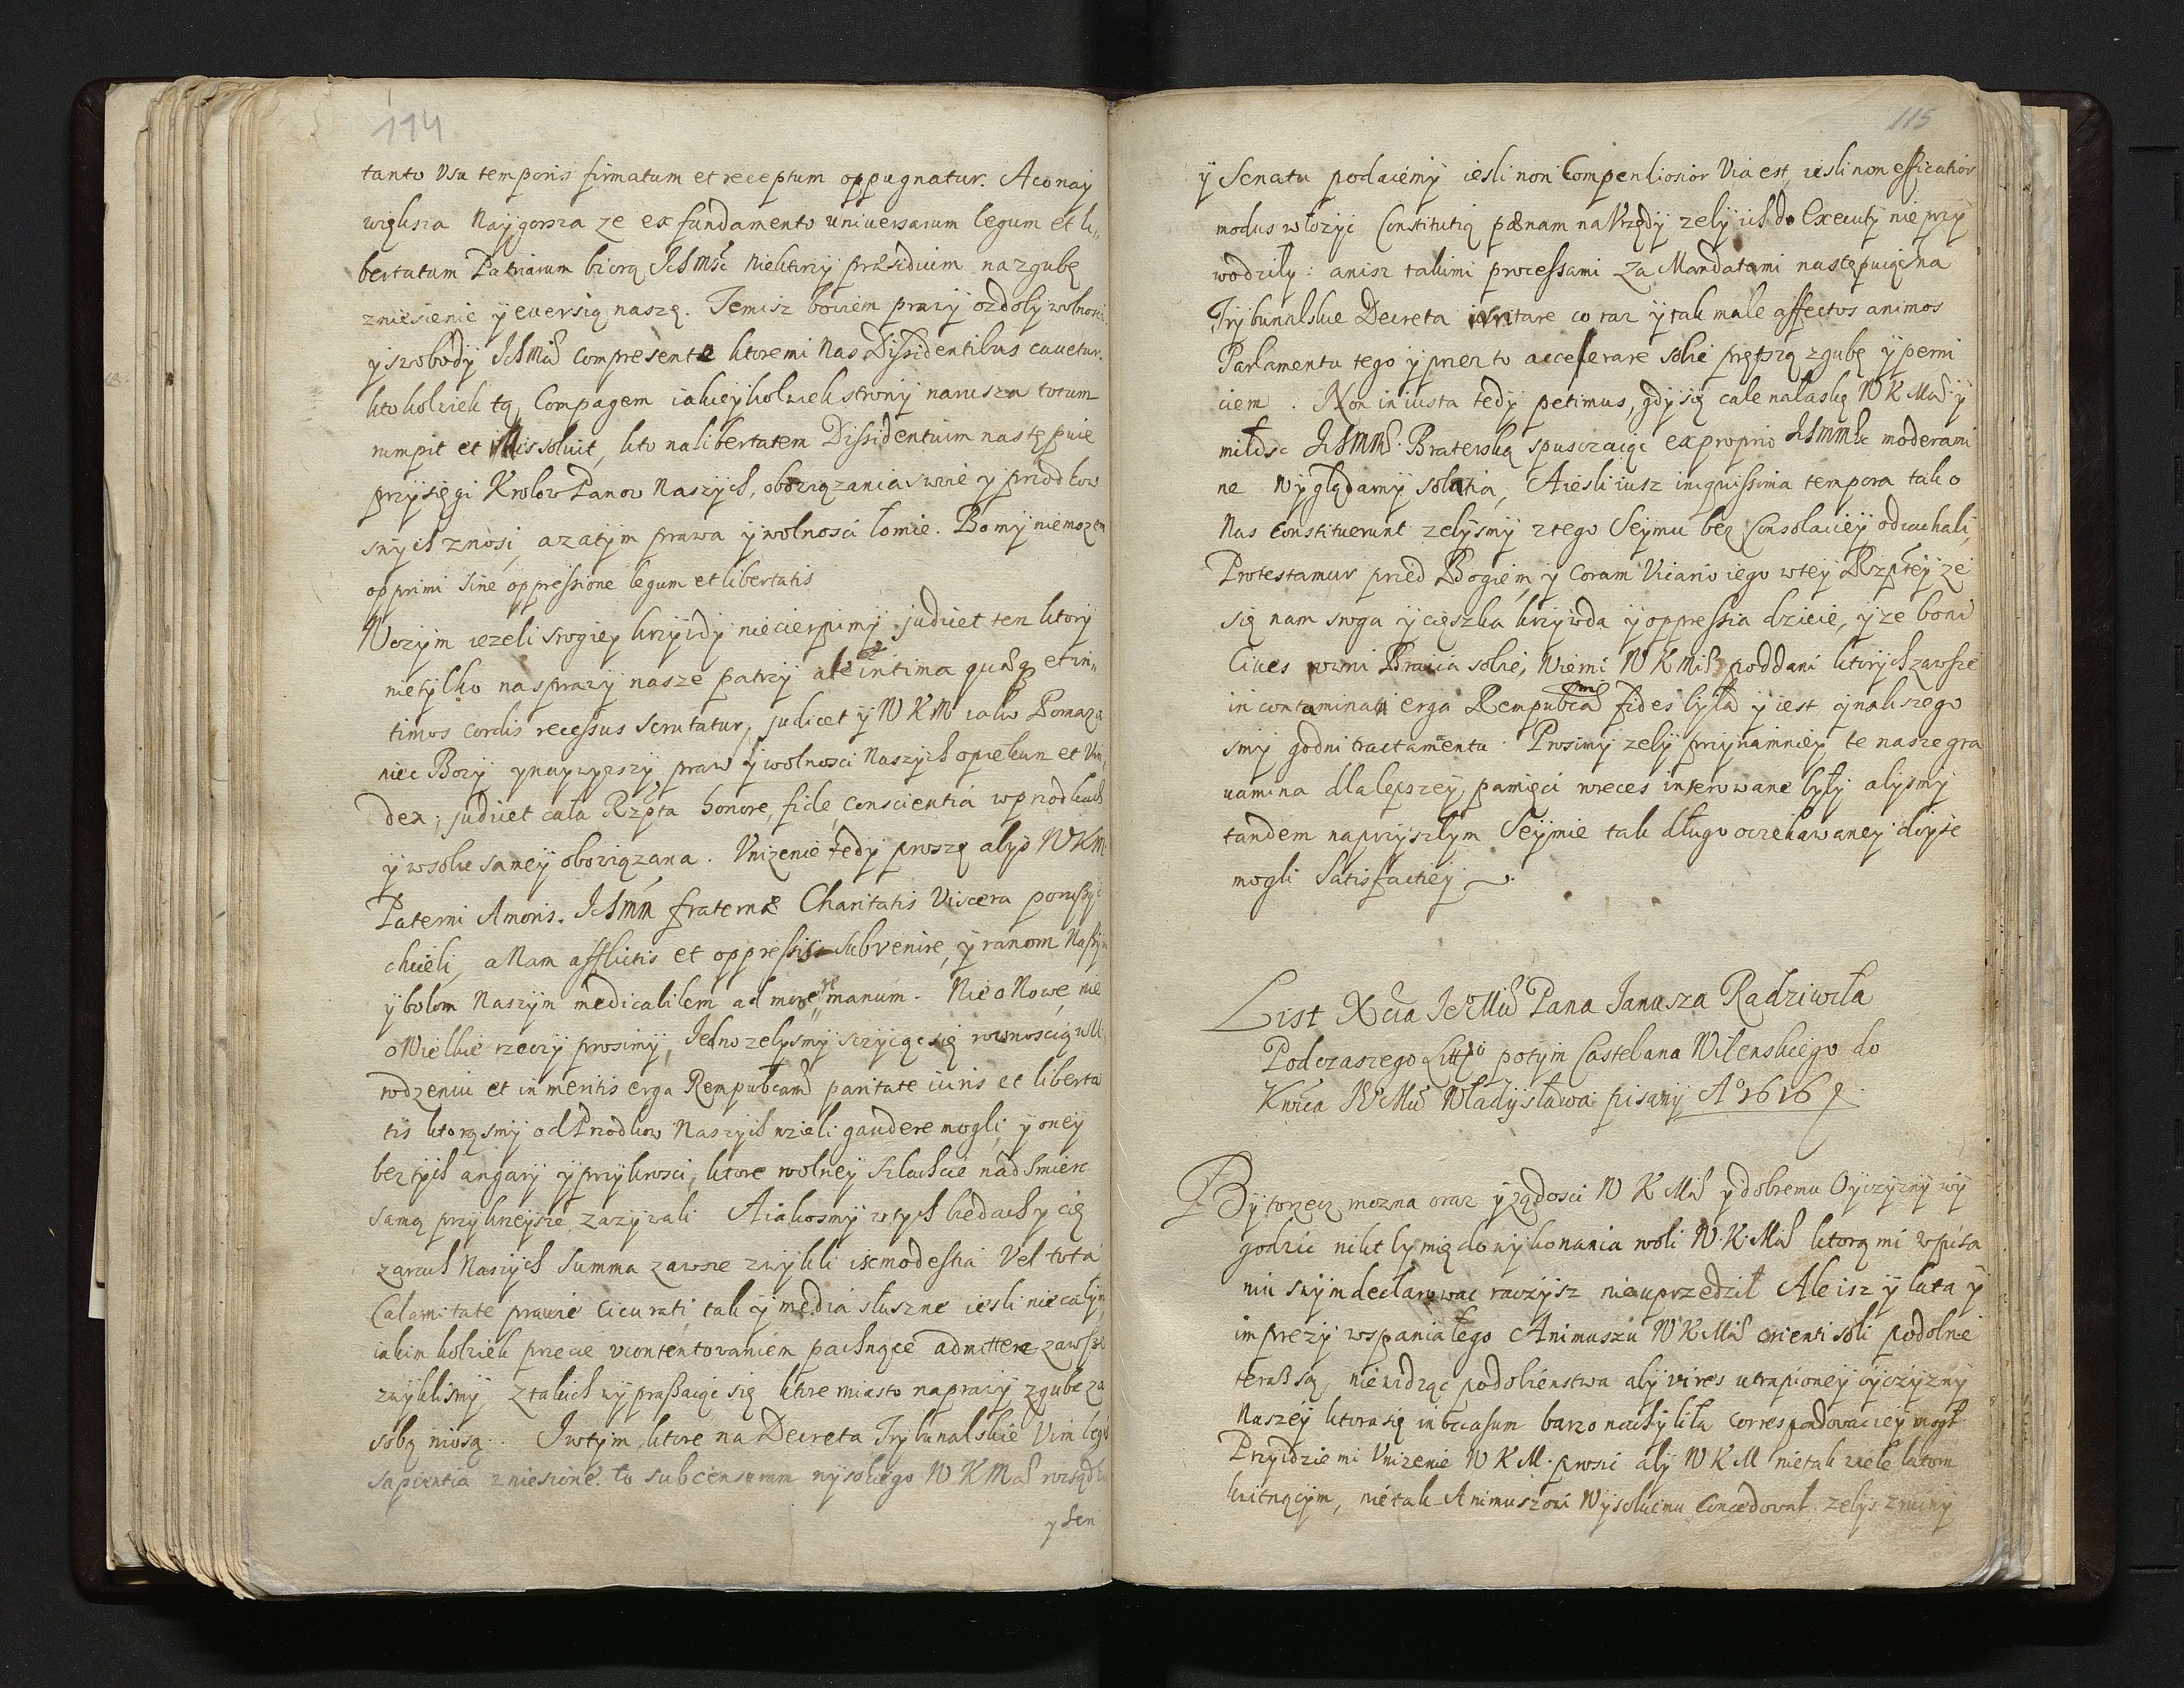 114
tanto vsu temporis firmatum et receptum oppugnatur. Aco nay
większa Naygorsza ze ex fundamento universarum legum et li„
bertatum Patriarum biorą IchMśc niektorzy præsidium na zgubę
zniesienie y eversią naszę. Temisz bowiem prawy ozdoby wolnosci
y swobody IchMść compresentæ ktoremi Nas Dissidentibus cavetur.
kto kolwiek tą Compagem iakieykolwiek strony narusza totum
rumpit et dissoluit, kto na libertatem Dissidentium następuie
przysięgi Krolow Panow Naszych, obowiązania swoie y przodkow
swych znosi, azatym prawa y wolnosci łomie. Bo my niemozem
opprimi sine oppressione legum et libertatis
W czym iezeli srogiey krzywdy niecierpimy judicet ten ktory
nietylko na sprawy nasze patrzy ale intima quæq et in„
timos cordis recessus scrutatur, judicet y W K M iako Pomaza
niec Bozy y naywyzszy praw y wolnosci Naszych opiekun et Vin„
dex; judicet cała Rzpta honore, fide, conscientia w przodkach
y w sobie samey obowiązana. Vnizenie tedy proszę abys WKM
Paterni Amoris. IchMm fraternæ Charitatis Viscera poruszyc
chcieli, a Nam afflictis et oppressis subvenire, y ranom Naszym
y bolom Naszym medicabilem admovere manum. Nie o Nowe, nie
o Wielkie rzeczy prosimy, Jedno zebysmy szczycąc się rownoscią w U
rodzeniu et in meritis erga Rempubcam paritate iuris et liberta
tis ktorąsmy od Przodkow Naszych wzieli gaudere mogli, y oney
bez tych angary y przykrosci, ktore wolney szlachcie nad smierc
samą przykrzeysze zazywali. A iakosmy w tych biedach y cię
zarach Naszych summa zawsze zwykli ix modestia Vel tota
Calamitate prawie cicurati, tak y media słuszne iesli nie całym
iakim kolwiek przecie vcontentowaniem pachnące admittere zawsze
zwyklismy z takich wypraszaiąc się ktore miasto naprawy zgubę za
sobą niosą. I w tym, ktore na Decreta Trybunalskie Vim legis
sapientia zniesione. to sub censuram wysokiego W K Mśći rozsądku
y Sen

115
y Senatu podaiemy iesli non Compendiosior Via est, iesli non efficatior
modus włozyc Constitutią pænam na Vrzędy zeby ich do Executy nie przy
wodziły: anisz takimi processami za Mandatami następuiąc na
Trybunalskie Decreta irritare co raz y tak male affectos animos
Parlamentu tego y przez to accelerare sobie prętszą zgubę y perni
ciem. Non iniusta tedy petimus, gdy się cale na łaskę W K Mśći y
miłosc IchMm Braterską spusczaiąc ex proprio IchMmśc moderami
ne wyglądamy solatia, A iesli iusz iniquissima tempora tak o
Nas constituerunt zebysmy z tego Seymu bez Consolaciey odiachali,
Protestamur przed Bogiem, y coram Vicario iego w tey Rzptey ze
się nam sroga y cięszka krzywda y oppressia dzieie, y ze boni
Cives rowni Bracia sobie, wierni W K Mśći poddani ktorych zawsze
incontaminata erga Rempubcam fides była y iest y nakszego
smy godni tractamentu. Prosimy zeby przynamniey te nasze gra
uamina dla lepszey pamięci w reces inserowane były abysmy
tandem na przyszłym Seymie tak długo oczekawaney doyse
mogli Satisfactiey.
List Xcia JeoMci Pana Janusza Radziwiła
Podczaszego Litto potym Castelana Wilenskiego do
Krwca JeoMci Władysława pisany Ao 1616
By to rzecz mozna oraz y ządosci W K Mśći y dobremu Oyczyzny wy
godzic nikt by mię do wykonania woli W. K. Mśći ktorą mi w pisa
niu swym declarowac raczysz nieuprzedził Ale isz y lata y
imprezy wspaniałego Animuszu W K Mśći orienti soli podobne
teraz są, niewidząc podobienstwa aby vires utrapioney oyczyzny
Naszey ktora się in occasum barzo nachyliła correspondowaciey mogł
Przydzie mi Vnizenie W K M. prosic aby W K M nietak wiele latom
kwitnącym, nie tak Animuszowi Wysokiemu concedował. zebys zwiny